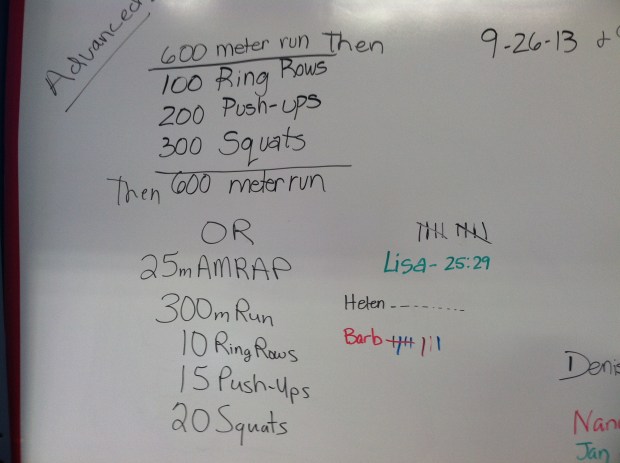 Advanced
600 meter run then
9-26-13
100 Ring Rows
200 Push-ups
300 Squats
Then 600 meter run
OR
25m AMRAP
300m Run
10 Ring Rows
15 Push-Ups
20 Squats
Lisa - 25:29
Helen ---------
Barb
Denis
Nan
Jan